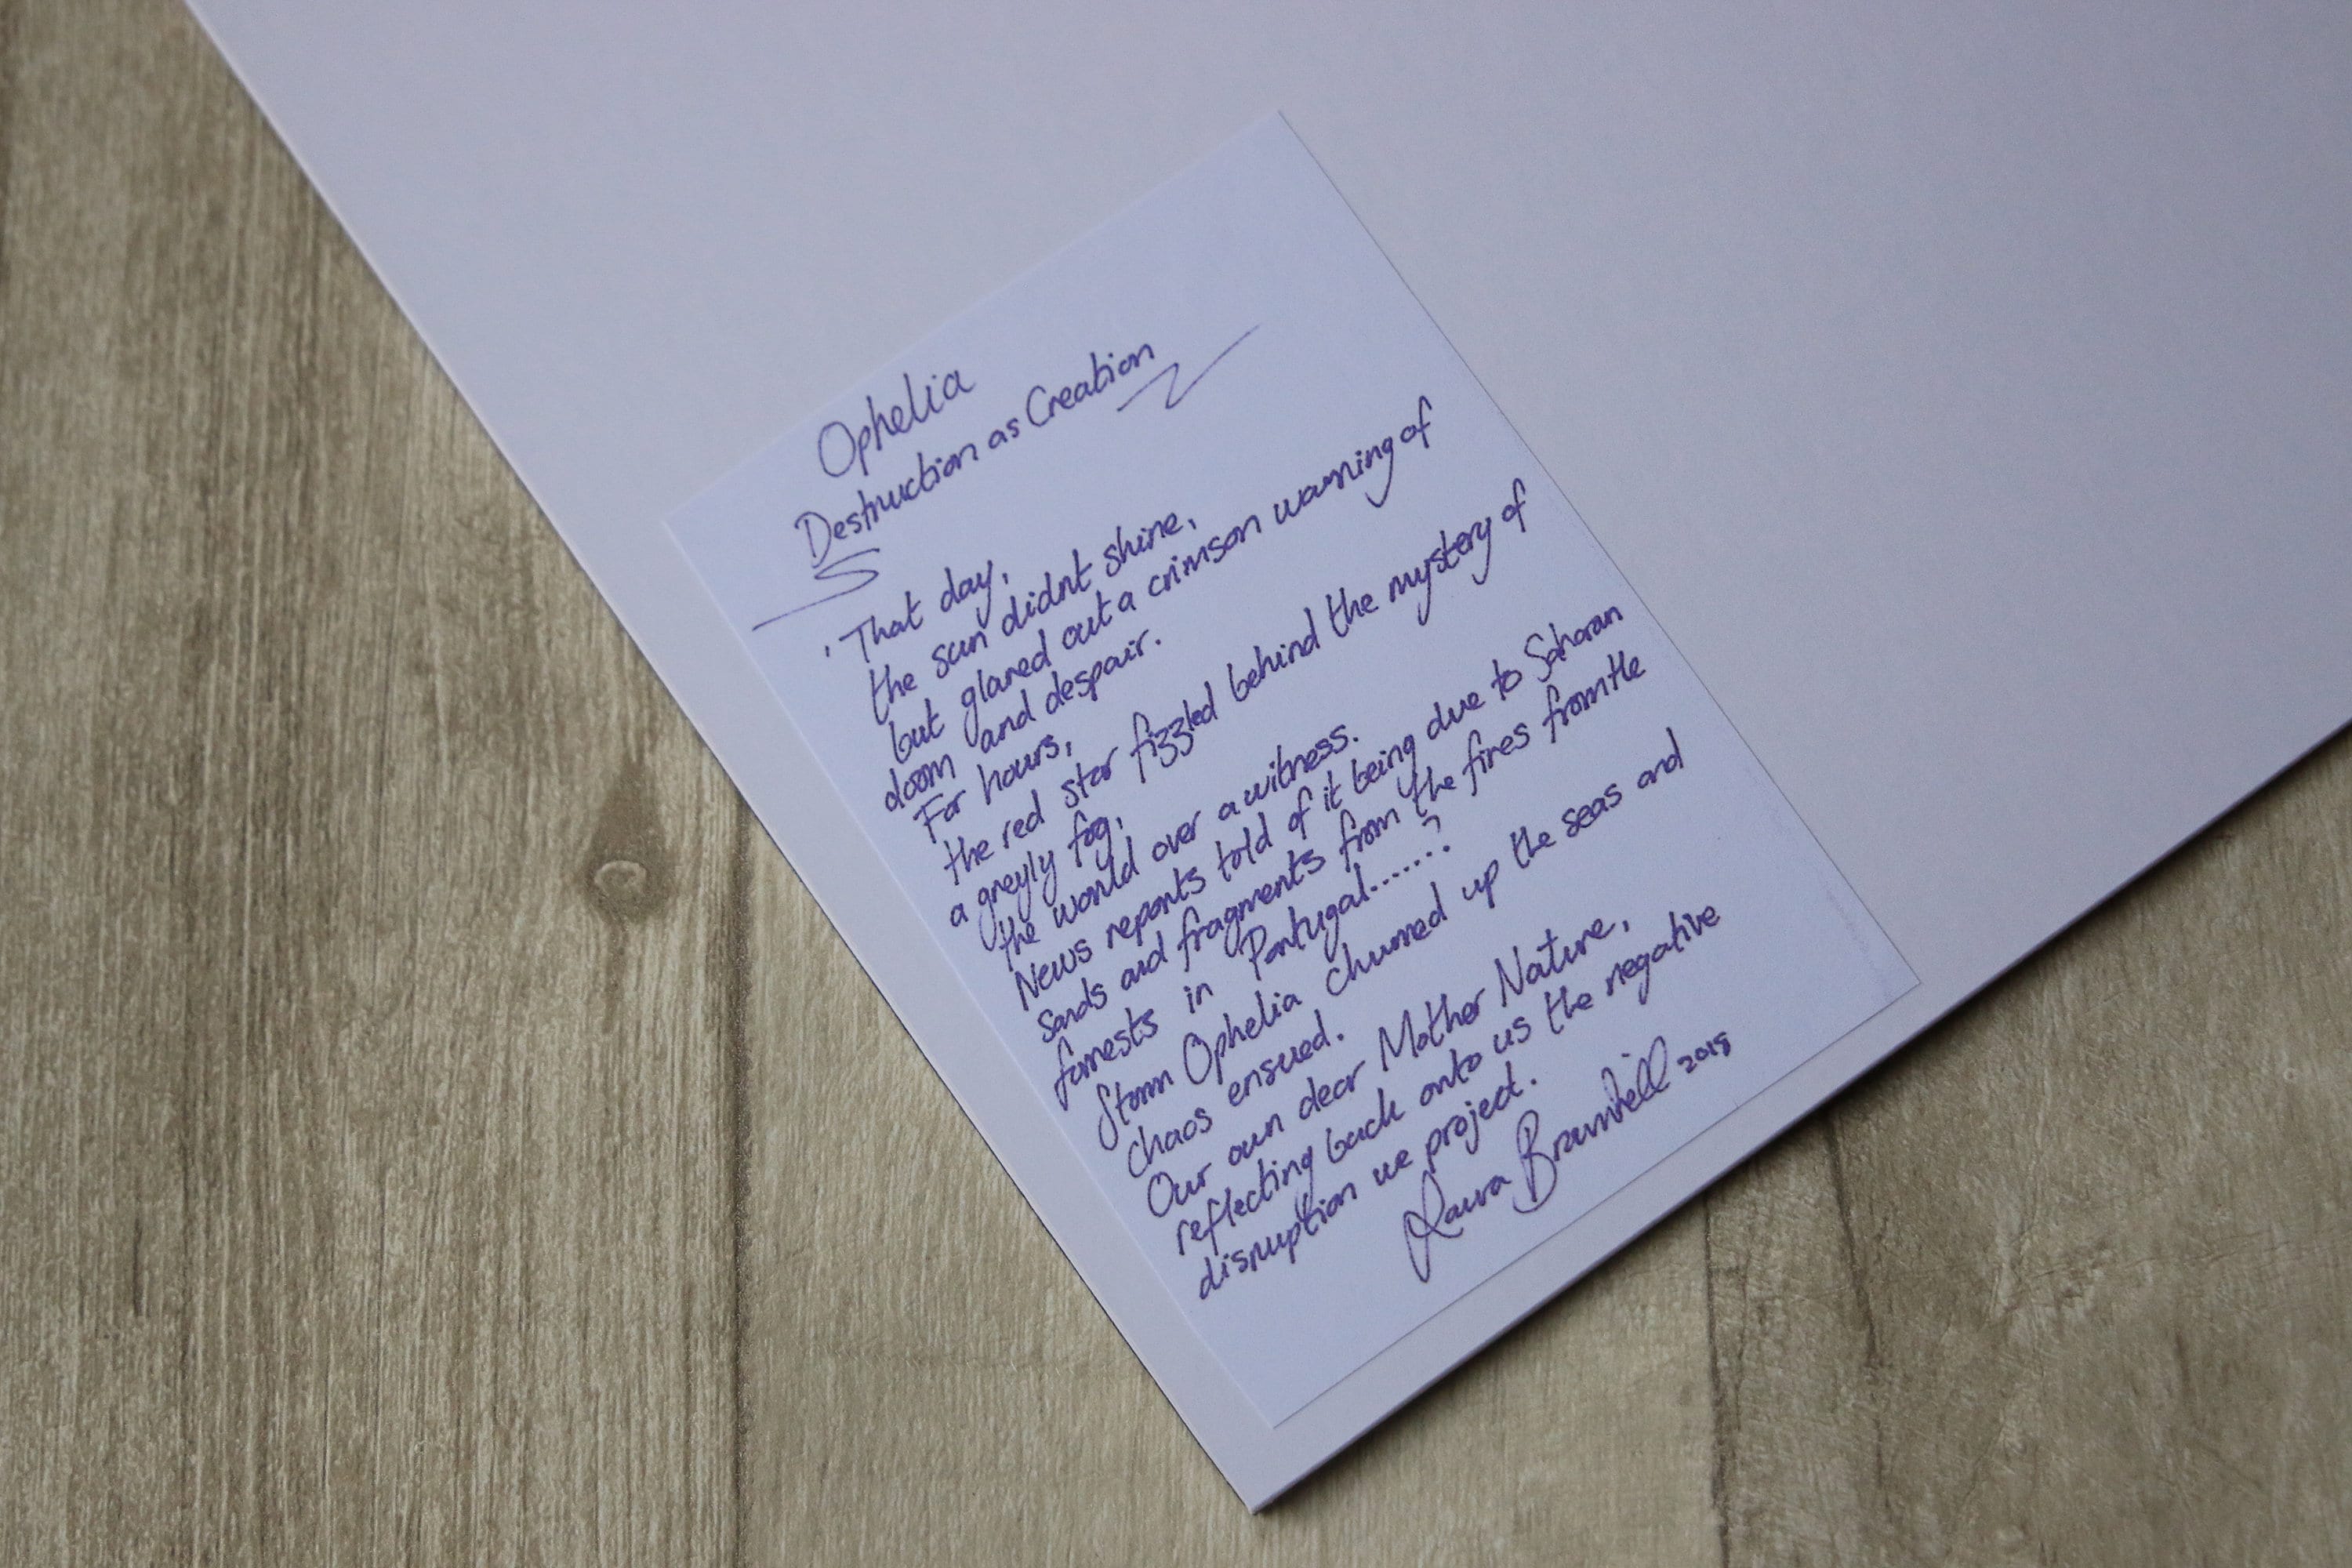 Ophelia
Destruction as Creation
'That day,
the sun didnt shine,
but glared out a crimson warning of
doom and despair.
For hours,
the red star fizzled behind the mystery of
a greyly fog,
the world over a witness.
News reports told of it being due to Saharan
sands and fragments from the fires from the
forrests in Portugal......?
Storm Ophelia churned up the seas and
chaos ensued.
Our own dear Mother Nature,
reflecting back onto us the negative
disruption we project.
Laura Bramhill 2018